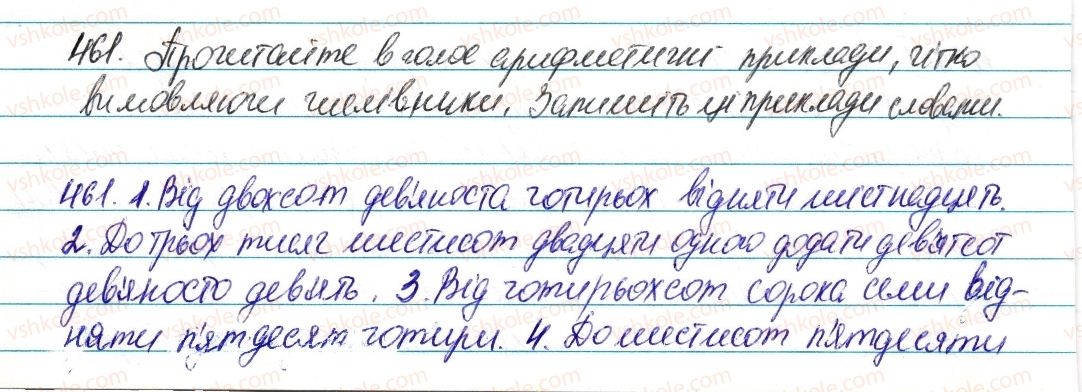 461. Прочитайте вголос арифметичні приклади, чітко
вимовляючи числівники. Запишіть ці приклади словами.
461. 1. Від двохсот дев'яноста чотирьох відняти шістнадцять.
2. До трьох тисяч шестисот двадцяти одного додати дев'ятсот
дев'яносто дев'ять. 3. Від чотирьохсот сорока семи від-
няти п'ятдесят чотири. 4. До шестисот п'ятдесяти